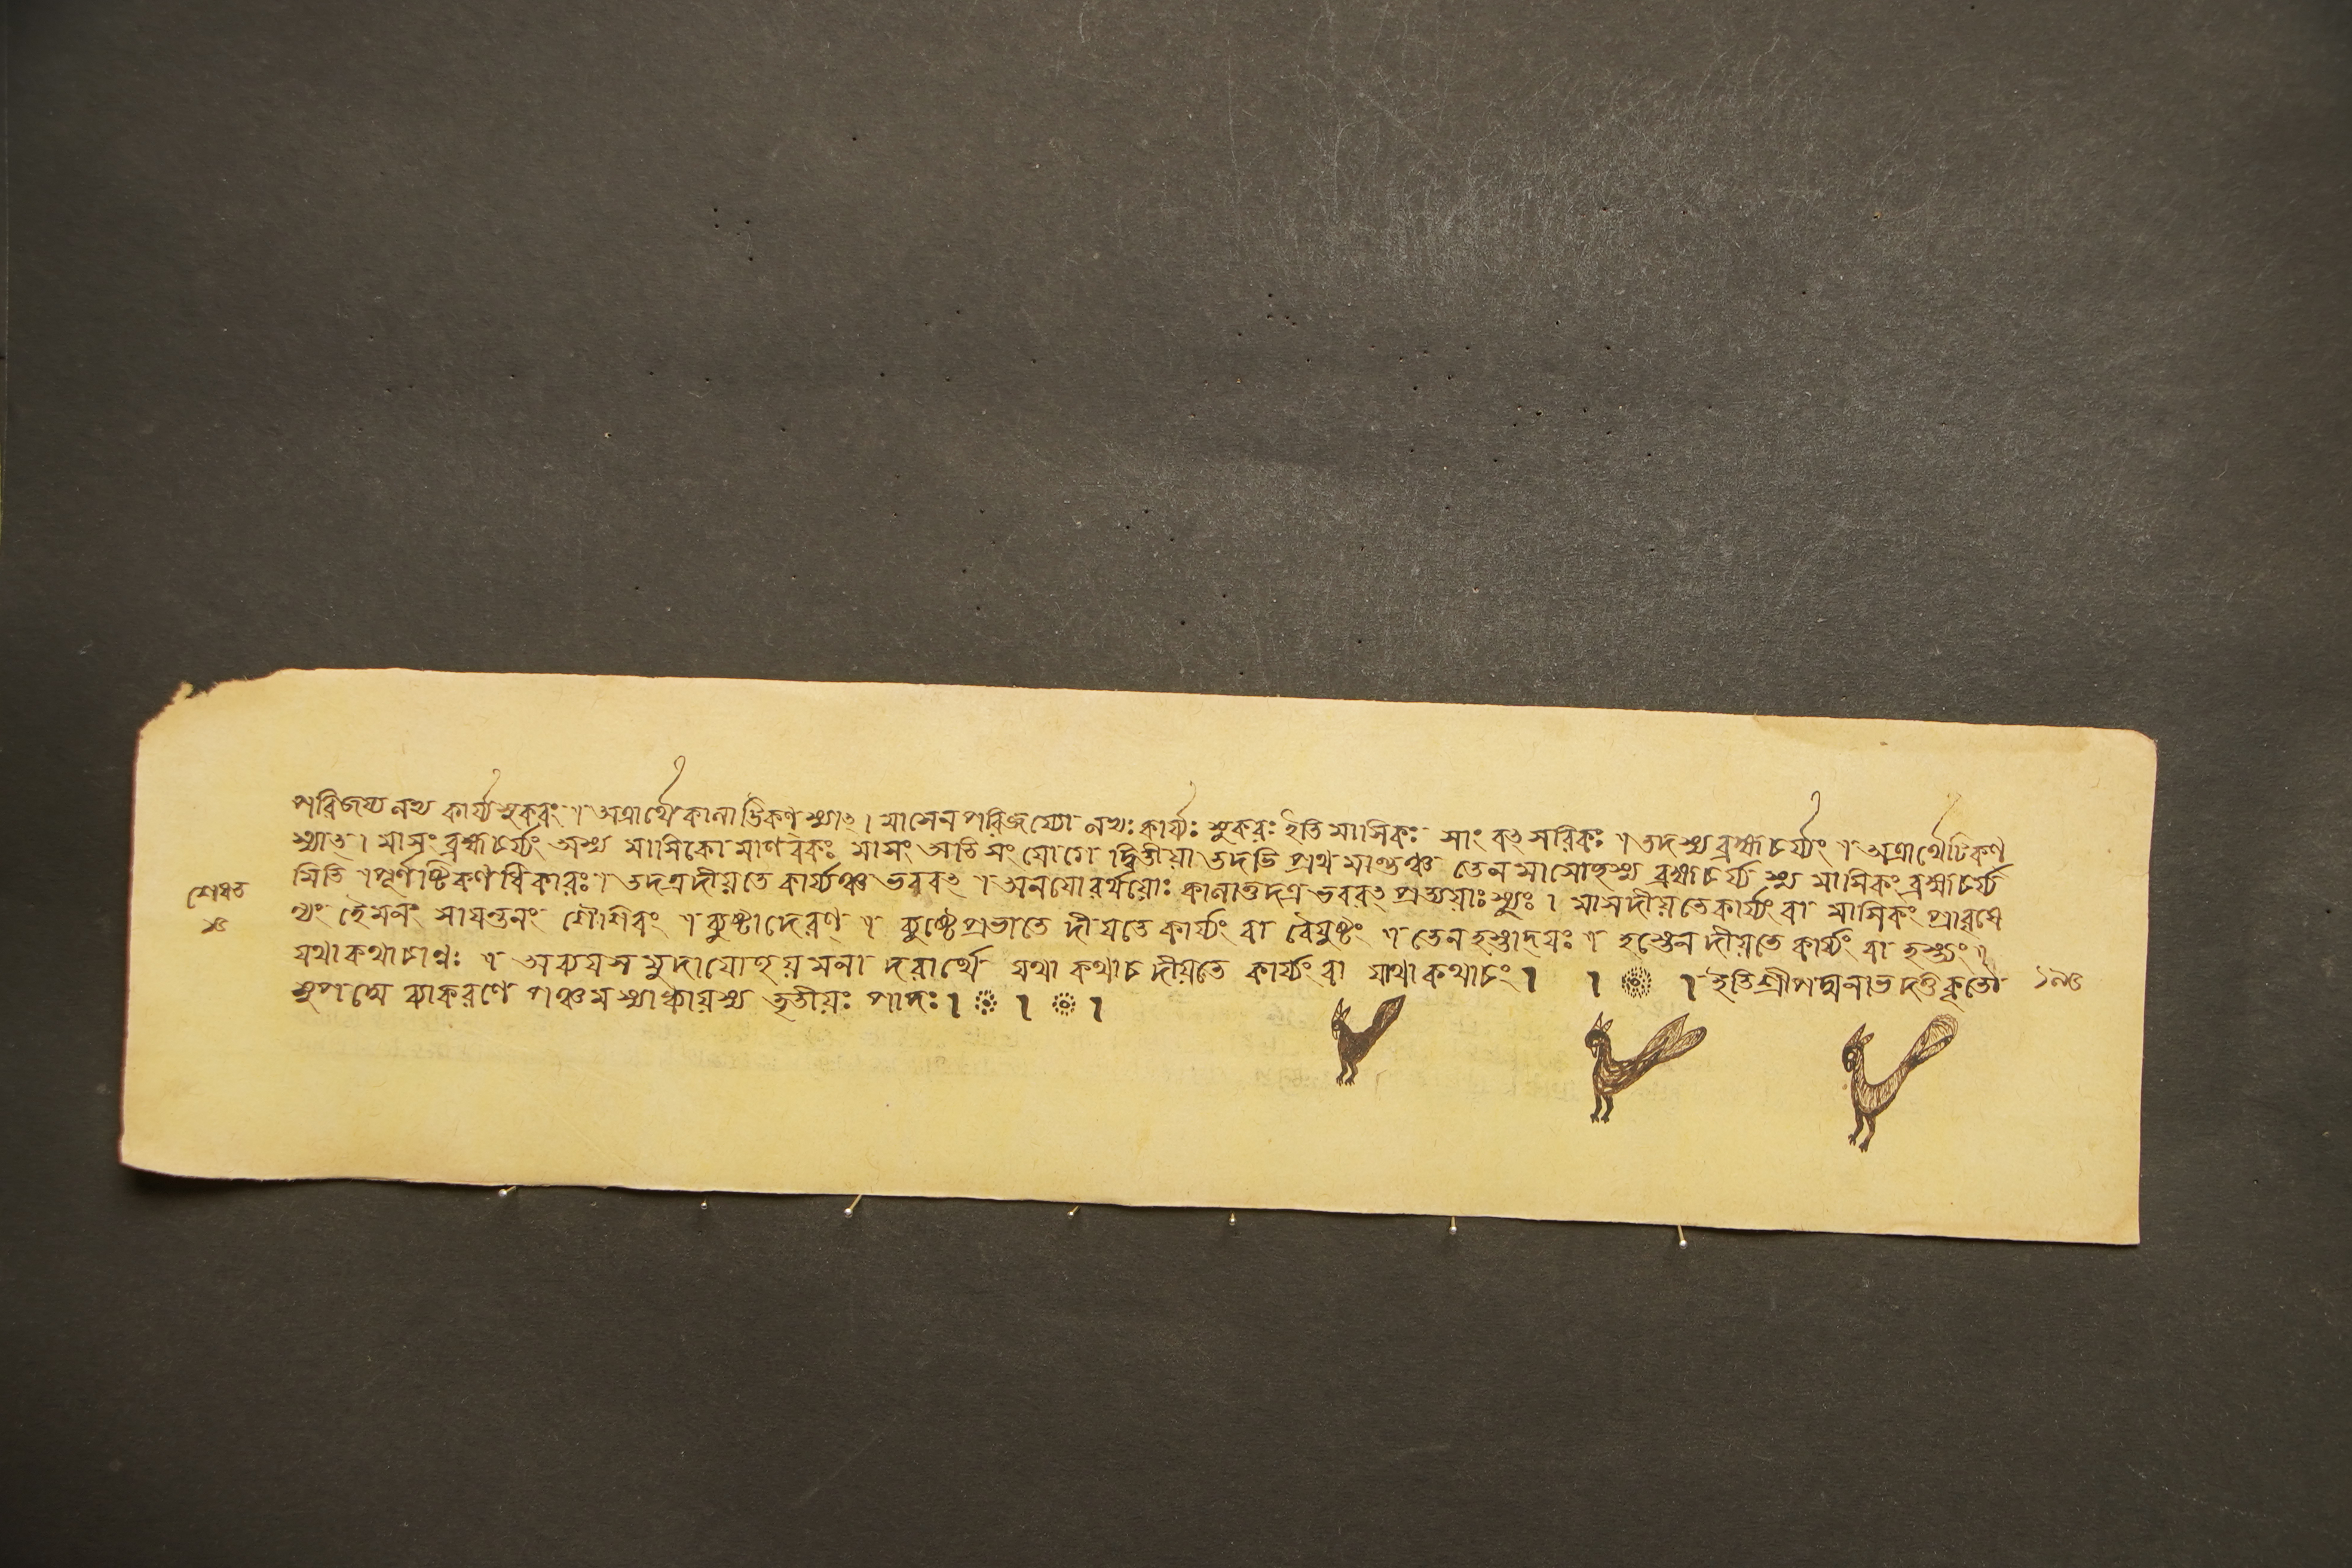 পরিজয্যলভ্য কার্য্যসুকরং । অত্রার্থে কালাট্টিকণ্ স্যাৎ । মাসেন পরিজয্যো লভ্যঃ কার্য্যঃ সুকরঃ ইতি মাসিকঃ সাংবৎসরিকঃ । তদস্য ব্রহ্মচর্য্যং । অত্রার্থে টিকণ্
স্যাৎ । মাসং ব্রহ্মচর্য্যং অস্য মাসিকো মাণবকঃ মাসং অতি সংযোগে দ্বিতীয়া তদতি প্রথমান্তঞ্চ তেন মাসোহস্য ব্রহ্মচর্য্যস্য মাসিকং ব্রহ্মচর্য্য
মিতি । পূর্ণষ্টিকণধিকারঃ । তদত্র দীয়তে কার্য্যঞ্চ ভববৎ । অনযোরর্থয়োঃ কালাত্তদত্র ভববৎ প্রত্যয়াঃ স্যুঃ । মাসদীয়তে কার্য্যং বা মাসিকং প্রাবৃষে
ণ্যং হৈমনং সাযন্তনং শৈশিরং । ব্যুষ্টাদেরণ্ । ব্যুষ্টে প্রভাতে দীযতে কার্য্যং বা বৈযুষ্টং । তেন হস্তাদ্যঃ । হস্তেন দীয়তে কার্য্যং বা হস্ত্যং ।
যথাকথাচাণ্ণঃ । অব্যযসমুদাযোহয়মনাদরার্থে যথা কথাচ দীয়তে কার্য্যং বা যাথাকথাচং । । । ইতি শ্রীপদ্মনাভ দত্তকৃতৌ
সুপদ্মে ব্যাকরণে পঞ্চমস্যাধ্যায়স্য তৃতীয়ঃ পাদঃ । । ।